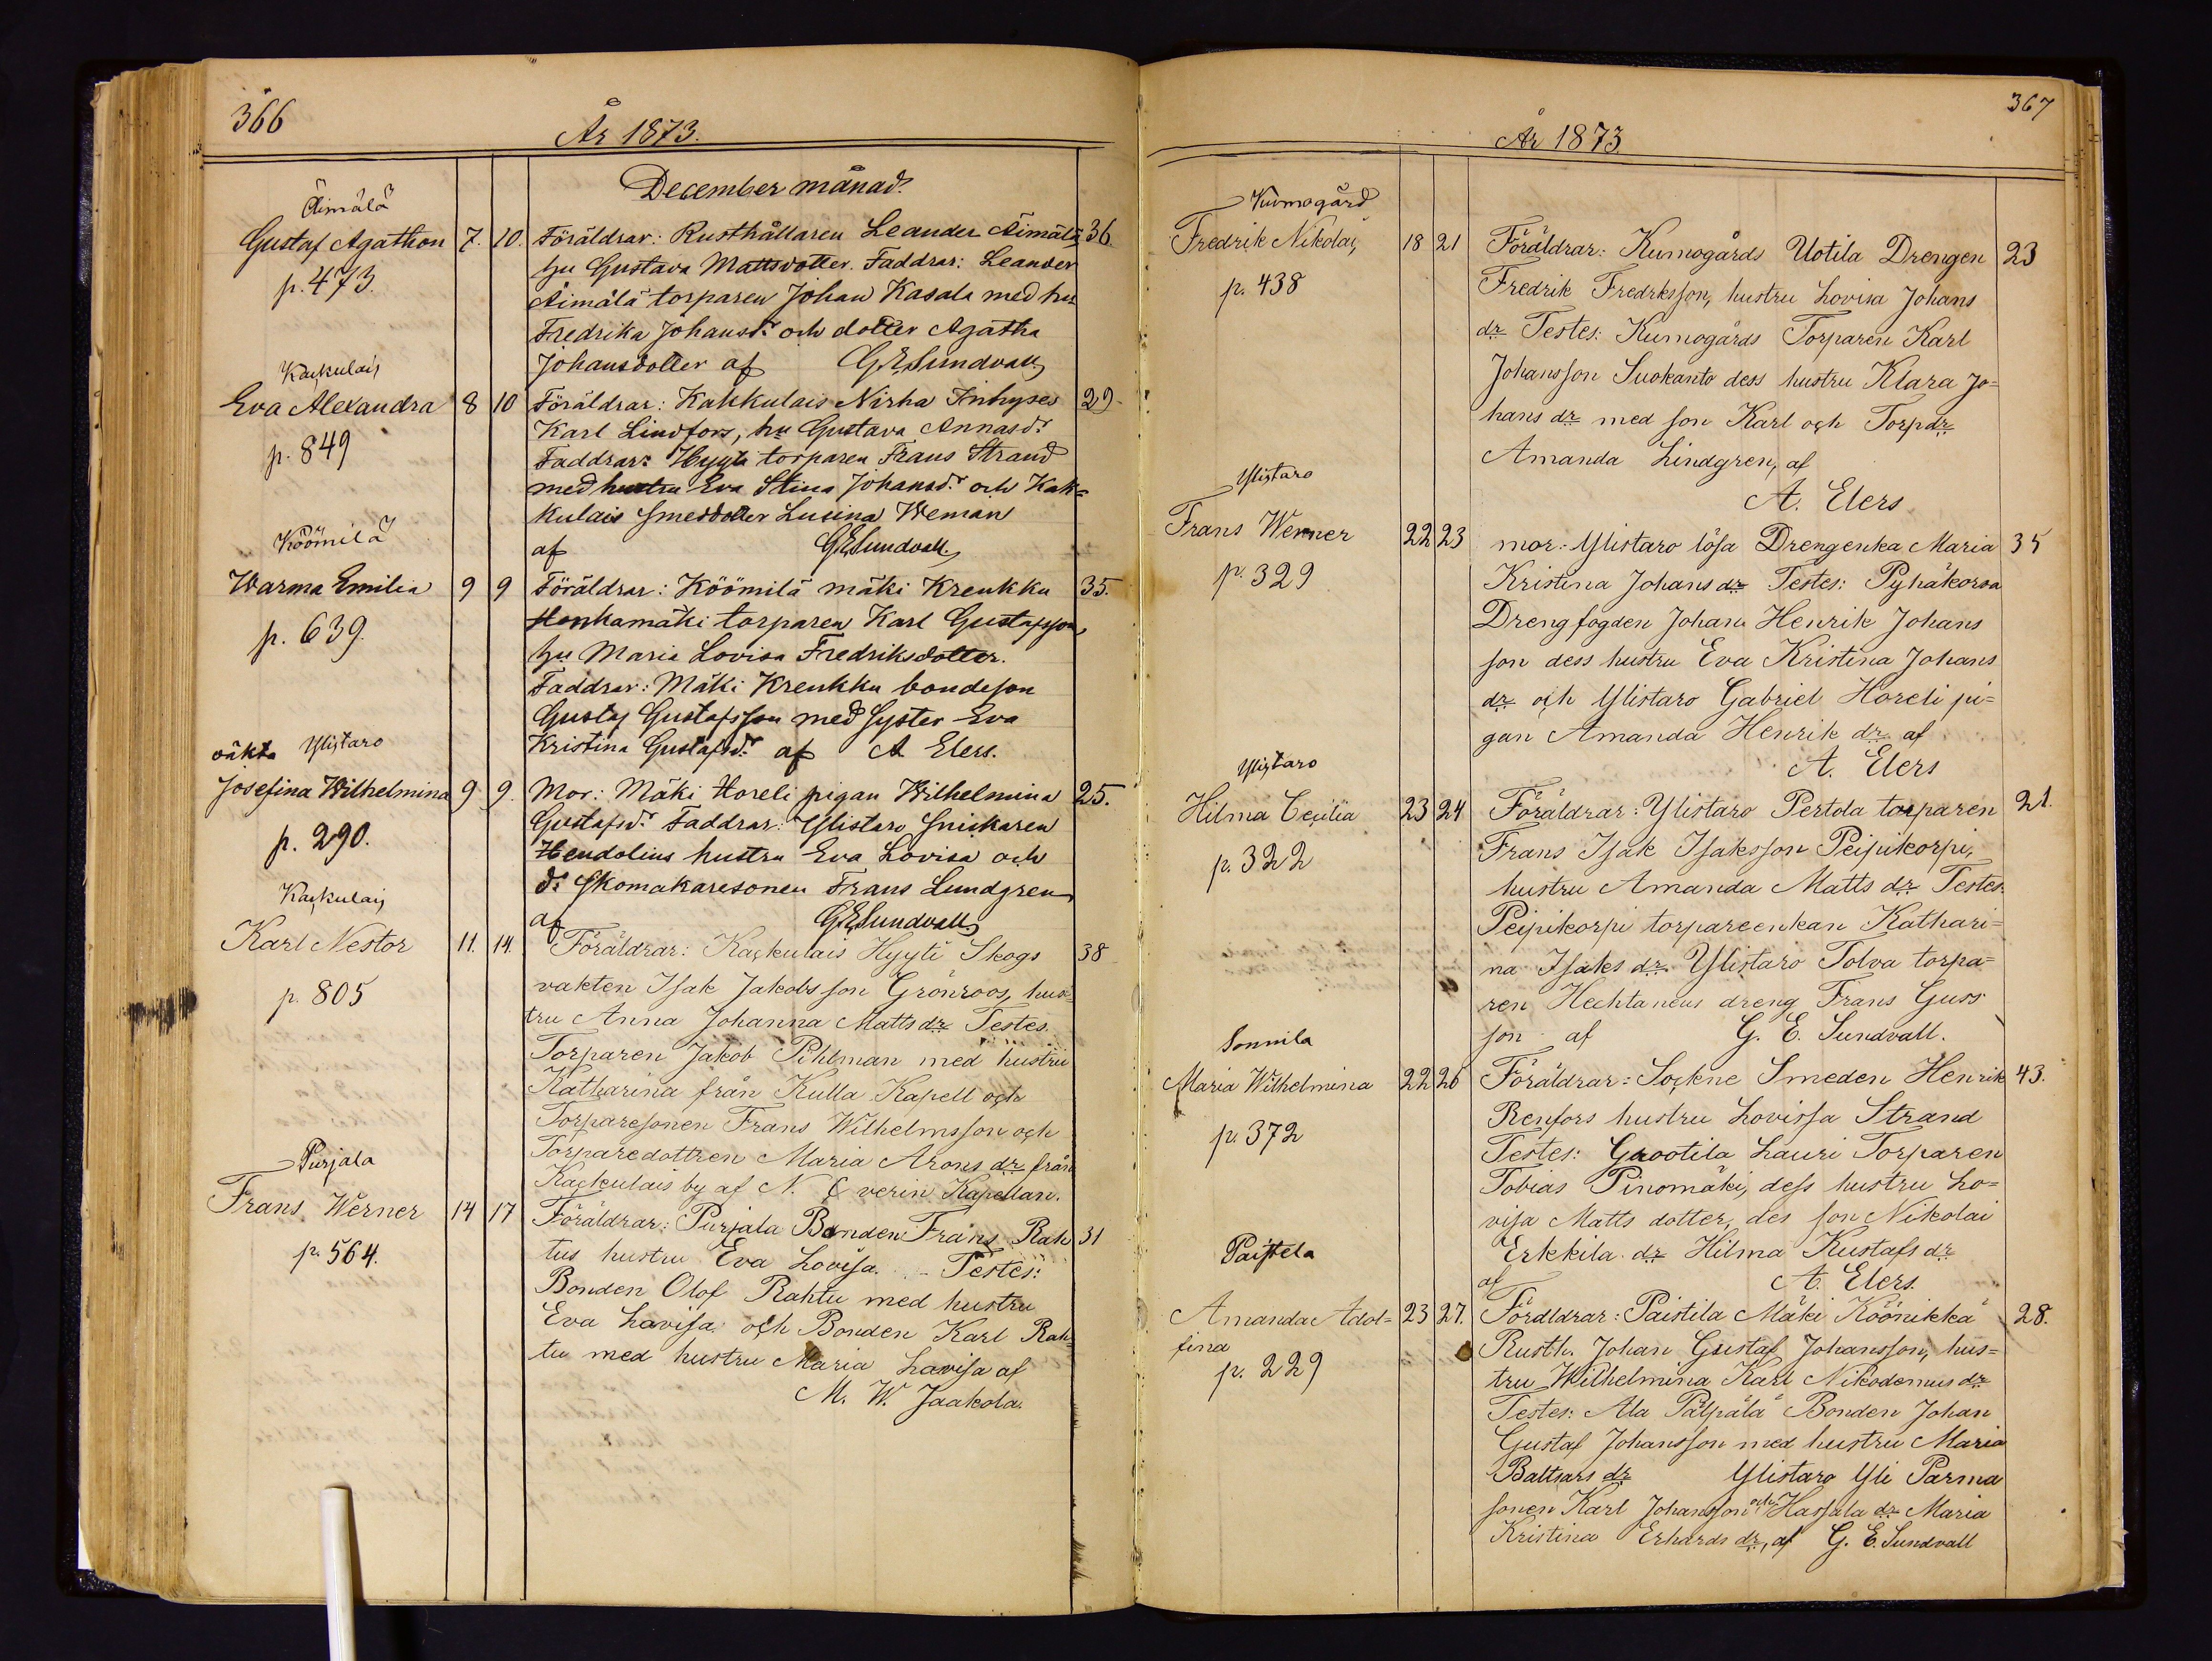 366
År 1873.
December månad.
Äimälä
Gustaf Agathon 7. 10. Föräldrar: Rusthållaren Leander Äimälä 36.
p. 473.
hu Gustava Mattsdotter. Faddrar: Leander
Äimälä torparen Johan Kasala med hu
Fredrika Johansd:r och dotter Agatha
Johansdotter af G E Sundvall
Kackulais
Eva Alexandra 8 10 Föräldrar: Kakkulais Nirha Inhyses 29
p. 849
Karl Lindfors, hu Gustava Annasd:r
Faddrar: Hyyti torparen Frans Strand
med hustru Eva Stina Johansd:r och Kak=
kulais Smeddotter Lusina Weman
af G E Sundvall.
Köömilä
Warma Emilia 9 9 Föräldrar: Köömilä mäki Krenkku 35.
p. 639.
Honkamäki torparen Karl Gustafsson,
hu Maria Lovisa Fredriksdotter.
Faddrar: Mäki Krenkku bondeson
Gustaf Gustafsson med Syster Eva
Kristina Gustafsd:r af A Elers.
oäkta Ylistaro
Josefina Wilhelmina 9 9. Mor: Mäki Horeli pigan Wilhelmina 25.
p. 290.
Gustafsd:r Faddrar: Ylistaro Snickaren
Hendolins hustru Eva Lovisa och
d:o Skomakaresonen Frans Lundgren
af G E Sundvall
Kackulais
Karl Nestor 11. 14. Föräldrar: Kackulais Hyyti Skogs 38
p. 805
vakten Isak Jakobsson Grönroos, hus=
tru Anna Johanna Matts dr Testes.
Torparen Jakob Pihlman med hustru
Katharina från Kulla Kapell och
Torparesonen Frans Wilhelmsson och
Torparedottren Maria Arons dr från
Kackulais by af N. verin Kapellan.
Purjala
Frans Werner 14 17 Föräldrar: Purjala Bonden Frans Rah 31
p. 564.
tus hustru Eva Lovisa. - Testes:
Bonden Olof Rahtu med hustru
Eva Lavisa och Bonden Karl Rah
tu med hustru Maria Lavisa af
M. W. Jaakola.
367
År 1873
Kumogård
Fredrik Nikolai, 18 21 Föräldrar: Kumogårds Uotila Drengen 23
p. 438
Fredrik Fredksson, hustru Lovisa Johans
dr Testes: Kumogårds Torparen Karl
Johansson Suokanto dess hustru Klara Jo=
hans dr med son Karl och Torpdr
Amanda Lindgren, af
A. Elers
Ylistaro
Frans Werner 22 23 mor: Ylistaro lösa Drengenka Maria 35
p. 329
Kristina Johans dr Testes: Pyhäkorsa
Drengfogden Johan Henrik Johans
son dess hustru Eva Kristina Johans
dr och Ylistaro Gabriel Horeli pi=
gan Amanda Henrik dr af
A. Elers
Ylistaro
Hilma Cecilia 23 24 Föräldrar: Ylistaro Pertola torparen 21.
p. 322
Frans Isak Isaksson Peipikorpi,
hustru Amanda Matts dr Testes.
Peipikorpi torpareenkan Kathari=
na Isaks dr Ylistaro Tolva torpa=
ren Hechtaneus dreng Frans Guss
son af G. E. Sundvall.
Sonnila
Maria Wilhelmina 22 26 Föräldrar: Sockne Smeden Henrik 43.
p. 372
Renfors hustru Lovissa Strand
Testes: Lauri Torparen
Tobias Pinomäki, dess hustru Lo=
visa Matts dotter, des son Nikolai
Erkkila dr Hilma Kustafs dr
af A. Elers.
Paistela
Amanda Adol= 23 27. Fördldrar: Paistila Mäki Köönikkä 28.
fina
p. 229
Rusth. Johan Gustaf Johansson, hus=
tru Wilhelmina Karl Nikodemus dr
Testes: Ala Pälpälä Bonden Johan
Gustaf Johansson med hustru Maria
Baltsars dr Ylistaro Yli Parma
sonen Karl Johansson och Hassala dr Maria
Kristina Erhards dr, af G. E. Sundvall